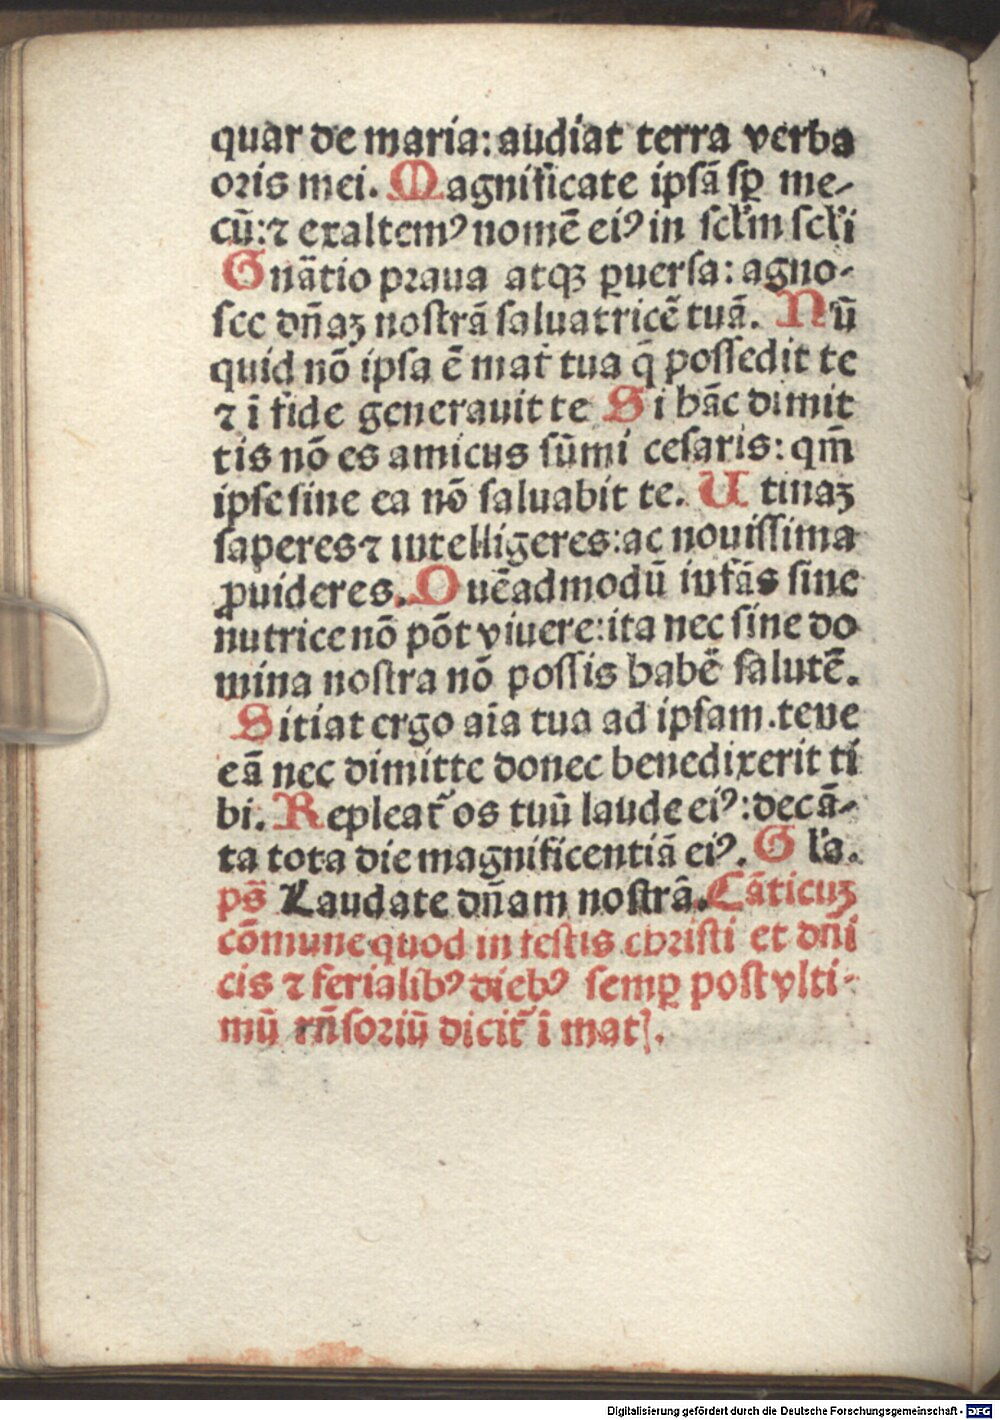 quar de maria: audiat terra verba
oris mei. Magnificate ipsā sꝑ me-
cū: ⁊ exaltemꝰ nomē eiꝰ in scl̄m scl̄i
Gnātio praua atqꝫ ꝑuersa: agno-
sce dn̄aꝫ nostrā saluatricē tuā. Nū
quid nō ipsa ē mat̄ tua q̄ possedit te
⁊ ī fide generauit te Si hāc dimit
tis nō es amicus sūmi cesaris: qm̄
ipse sine ea nō saluabit te. Utinaꝫ
saperes ⁊ intelligeres: ac nouissima
ꝓuideres. Quēadmodū infās sine
nutrice nō pōt viuere: ita nec sine do
mina nostra nō possis habē salutē.
Sitiat ergo aīa tua ad ipsam. tene
eā nec dimitte donec benedixerit ti
bi. Repleat̄ os tuū laude eiꝰ: decā-
ta tota die magnificentiā eiꝰ. Gl̄a.
ps̄ Laudate dn̄am nostrā. Cāticuꝫ
cōmune quod in festis christi et dn̄i
cis ⁊ ferialibꝰ diebꝰ semꝑ post vlti-
mū rn̄soriū dicit̄ ī mat̄.
Digitalisierung gefördert durch die Deutsche Forschungsgemeinschaft - DFG